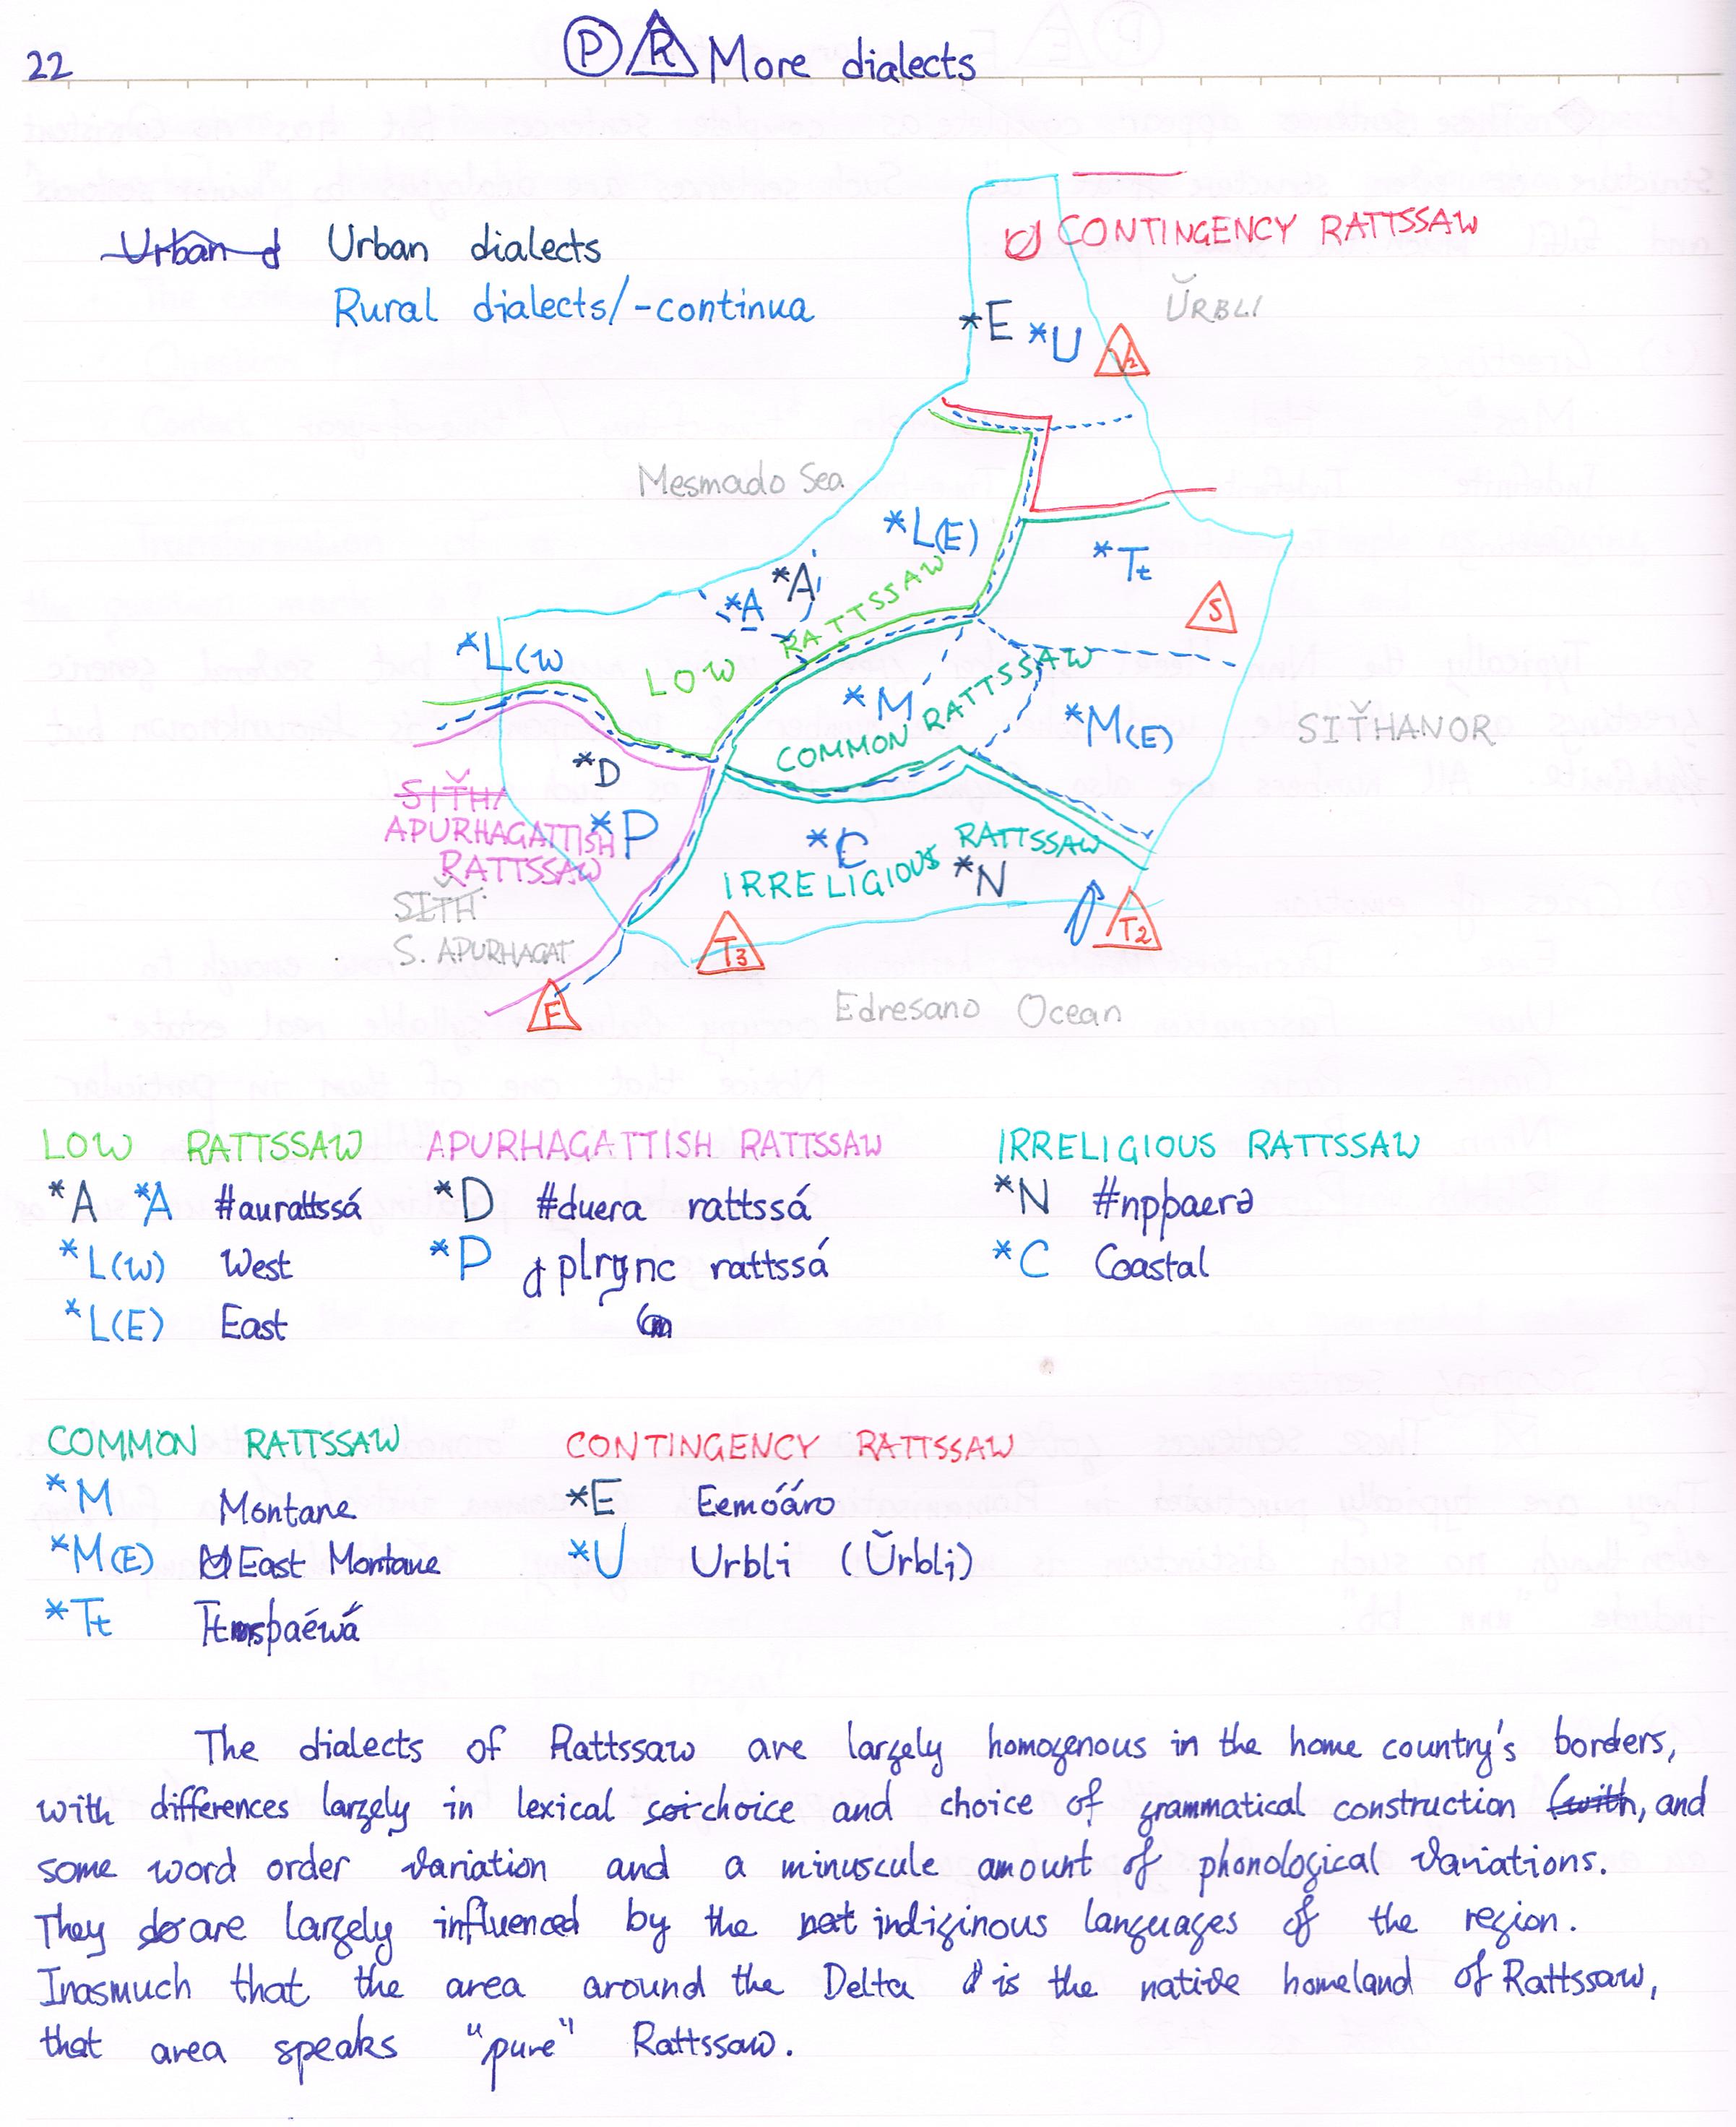 22
P R More dialects
Urban d Urban dialects
Rural dialects/-continua
CONTINGENCY RATTSSAW
ŬRBLI
*E *U V2
Mesmado Sea
*L(E)
*Tt
*A *A
S
*L(W
LOW RATTSSAW
*M
COMMON RATTSSAW
*M(E)
SIŤHANOR
*D
SIŤH/
APURHAGATTISH
RATTSSAW
*P
*C
IRRELIGIOUS RATTSSAW
*N
SIŤH
S. APURHAGAT
T3
T2
F
Edresano Ocean
LOW RATTSSAW APURHAGATTISH RATTSSAW IRRELIGIOUS RATTSSAW
*A *A #aurattssá *D #duera rattssá *N #npþaerə
*L(W) West *P rattssá *C Coastal
*L(E) East
COMMON RATTSSAW CONTINGENCY RATTSSAW
*M Montane *E Eemóáro
*M(E) East Montane *U Urbli (Ŭrbli)
*Tt
The dialects of Rattssaw are largely homogenous in the home country's borders,
with differences largely in lexical choice and choice of grammatical construction (with, and
some word order variation and a minuscule amount of phonological variations.
They do are largely influenced by the indiginous languages of the region.
Inasmuch that the area around the Delta is the native homeland of Rattssaw,
that area speaks "pure" Rattssaw.